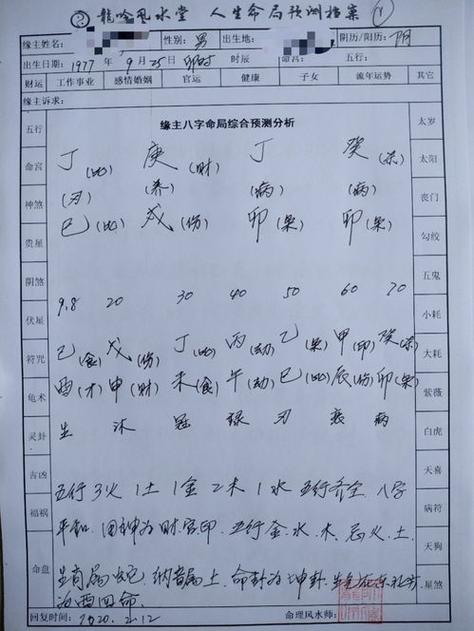 ② 龍吟风水堂 人生命局预测档案 ①
缘主姓名: 性别: 男 出生地: 阴历/阳历: 阴
出生日期: 1977年9月25日 卯时 时辰 命宫: 五行:
财运 工作事业 感情婚姻 官运 健康 子女 流年运势 其它
缘主诉求:
五行 缘主八字命局综合预测分析 太岁
命宫 丁(比) 庚(财) 丁 癸(杀) 太阳
神煞 (刃) (养) (病) (病) 丧门
贵星 巳(比) 戌(伤) 卯(枭) 卯(枭) 勾绞
阴煞 五鬼
伏星 9.8 20 30 40 50 60 70 小耗
符咒 己(食) 戊(伤) 丁(比) 丙(劫) 乙(枭) 甲(印) 癸(杀) 大耗
龟术 酉(才) 申(财) 未(食) 午(劫) 巳(比) 辰(伤) 卯(枭) 紫薇
灵卦 生 沐 冠 禄 刃 衰 病 白虎
吉凶 天喜
福祸 五行3火1土1金2木1水五行齐全.八字 病符
平和.用神为财官印.五行金.水.木.忌火.土. 天狗
命盘 生肖属蛇.纳音属土.命卦为坤卦. 星煞
为西四命.
回复时间: 2020.2.12 命理风水师: